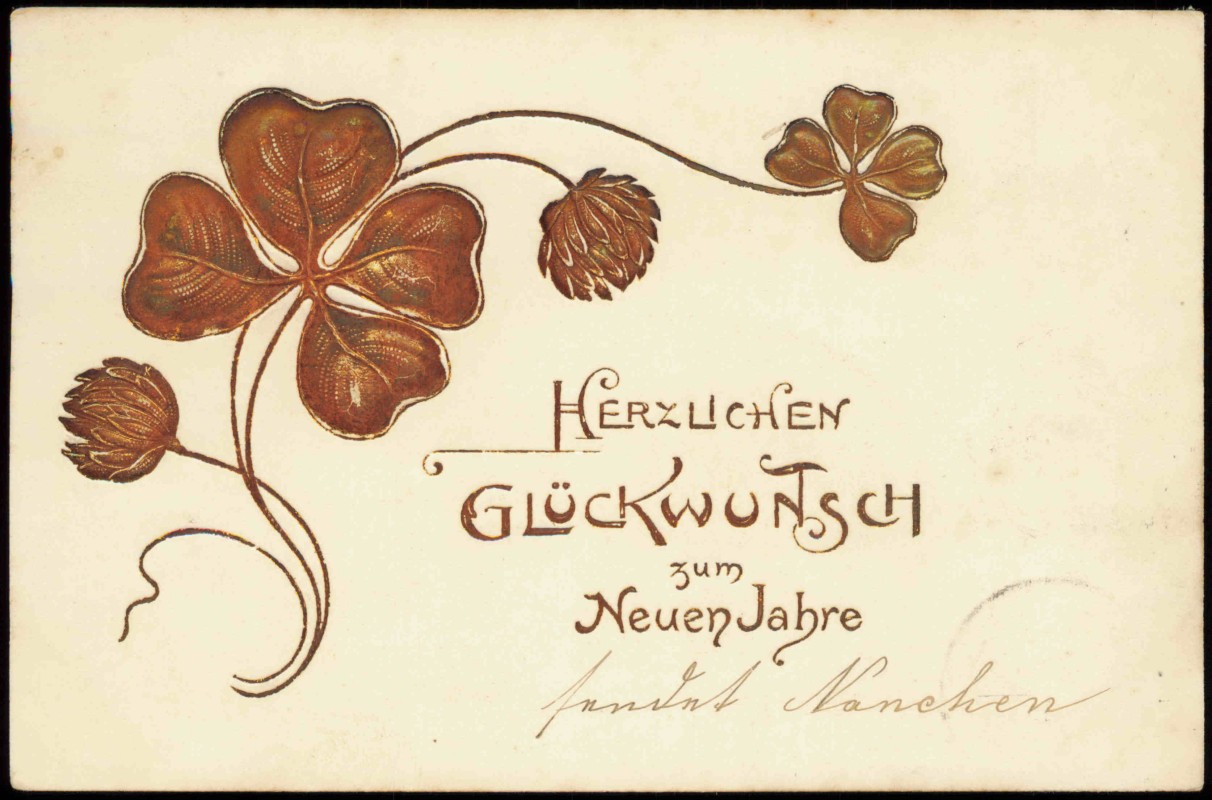 HERZLICHEN
GLÜCKWUNSCH
zum
Neuen Jahre
sendet Nanchen